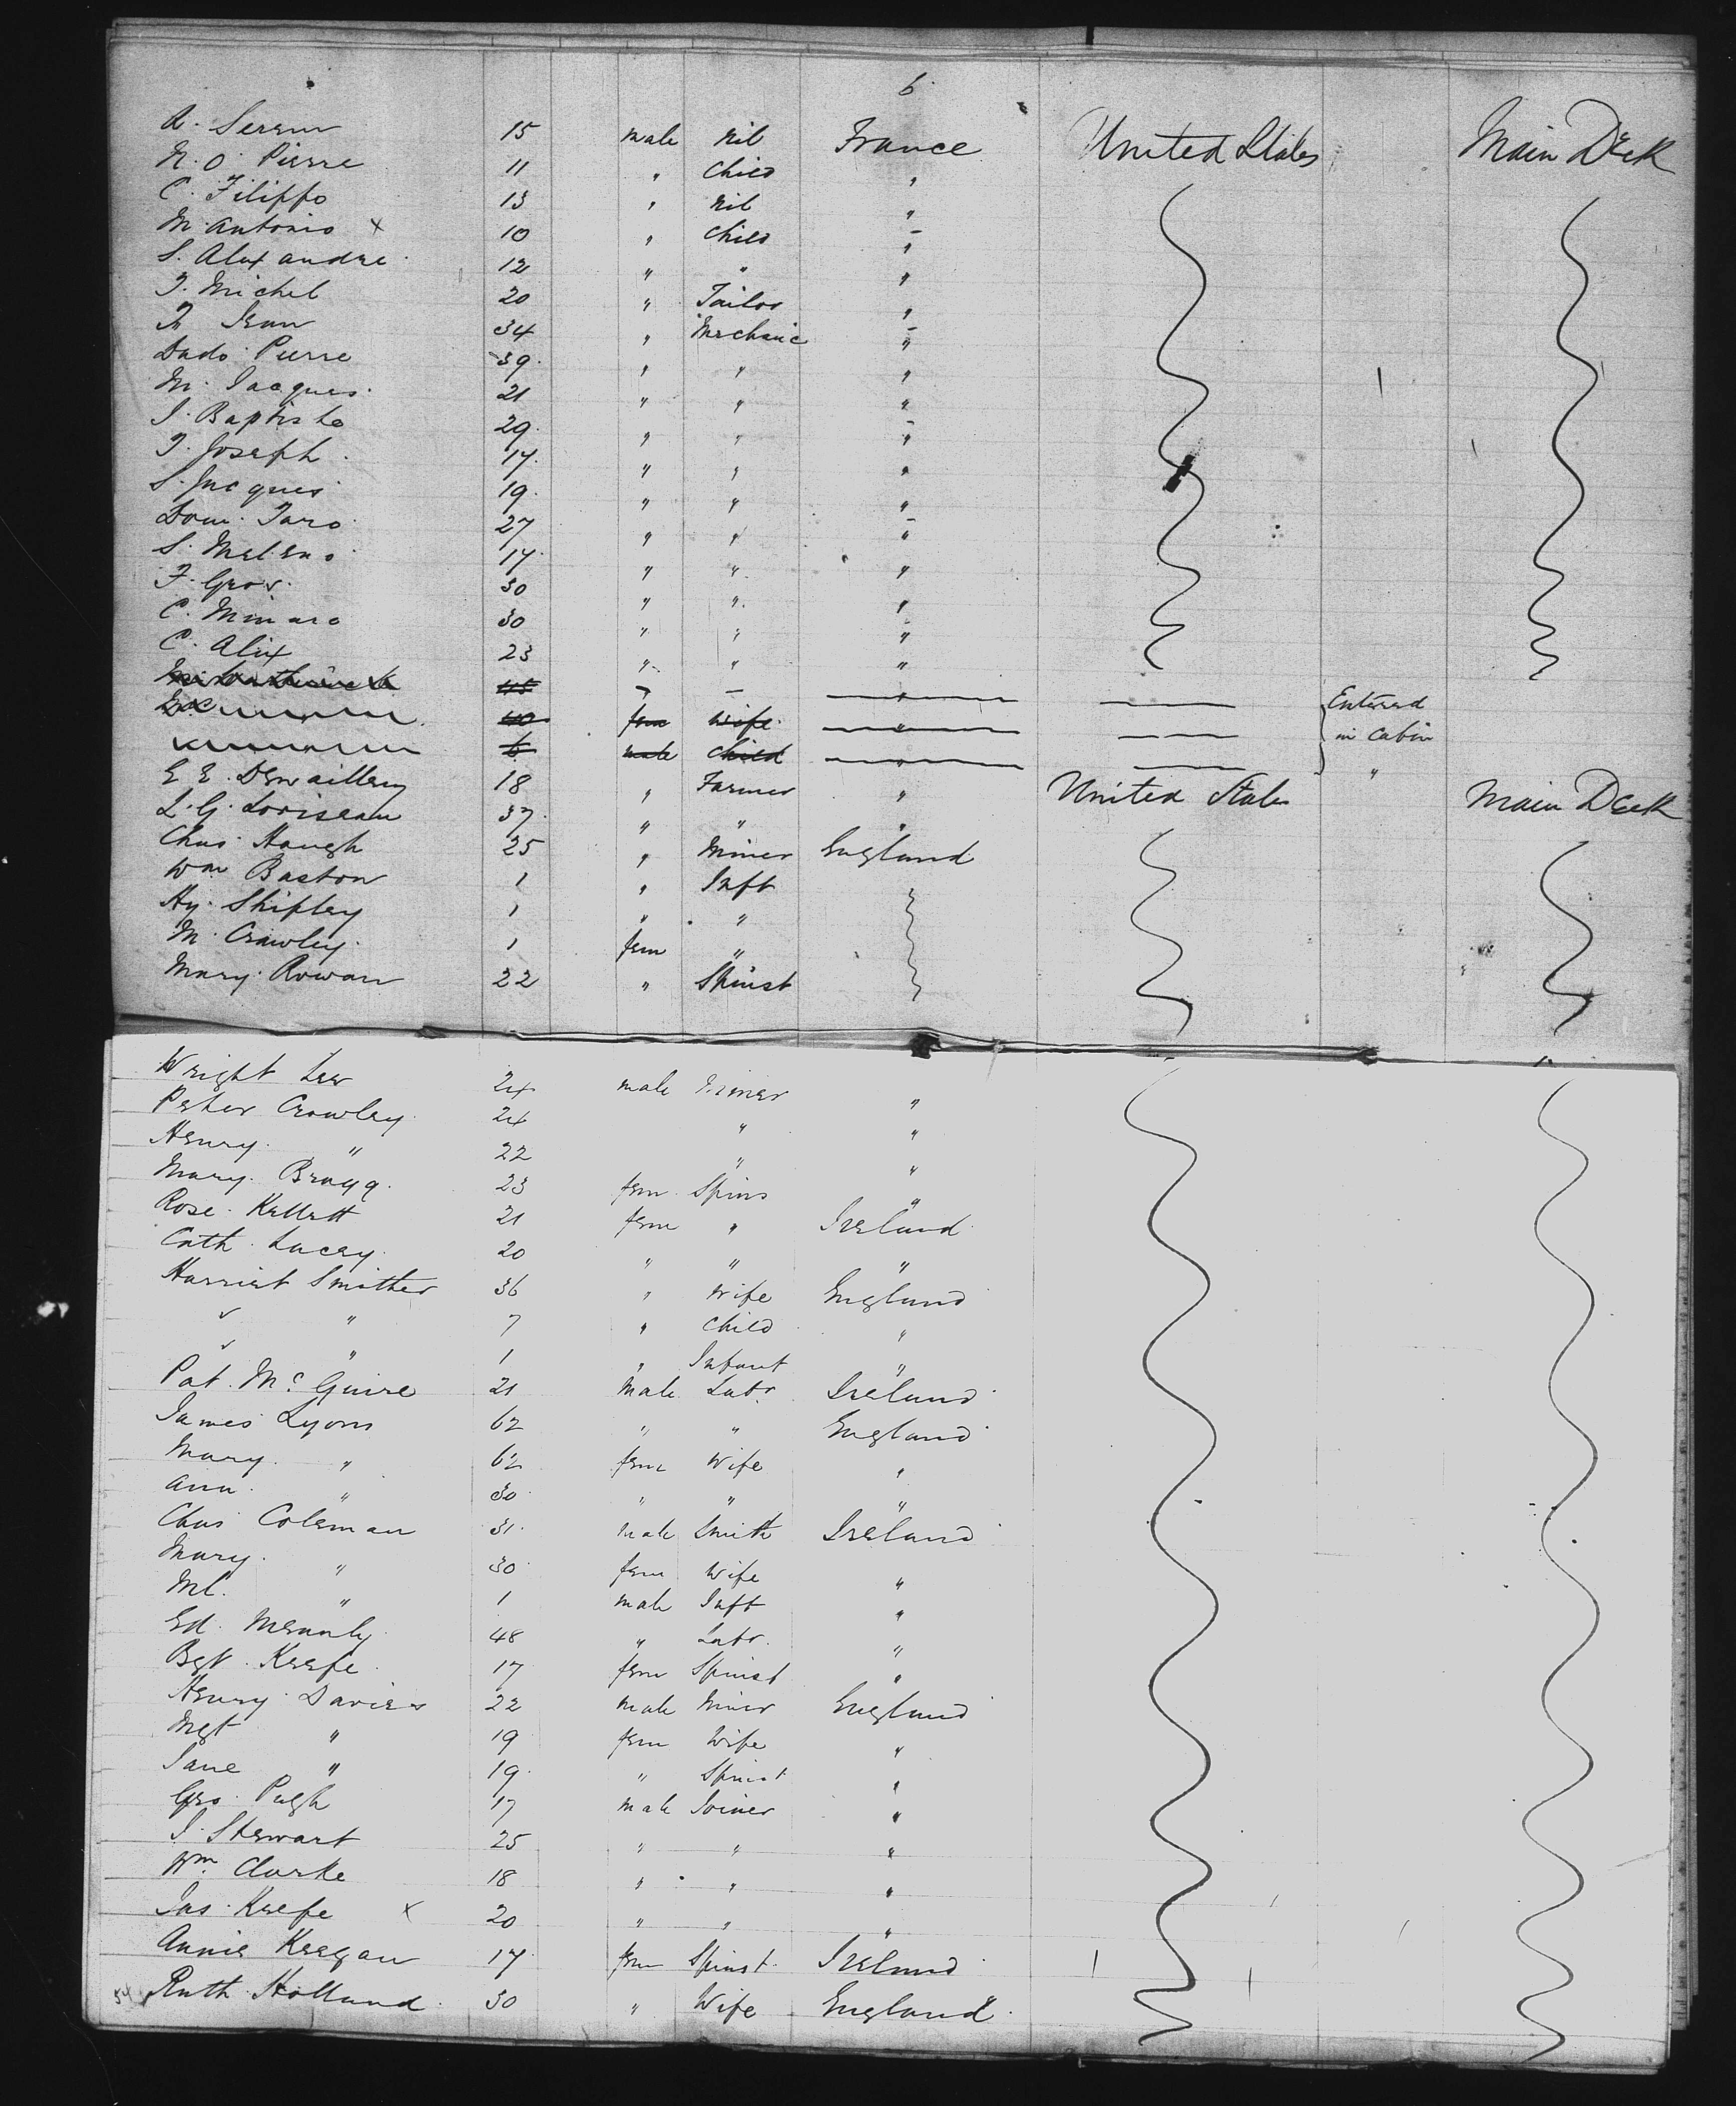 6
A. Serem 15 male Nil France United States Main Deck
N. O. Pierre 11 " Child "
C. Filippo 13 " Nil "
M. Antonio x 10 " Child "
S. Alexandre 12 " " "
J. Michel 20 " Tailor "
Jean 34 " Mechanic "
Dado Pierre 39 " " "
M. Jacques 21 " " "
J. Baptiste 29 " " "
J. Joseph 17 " " "
S. Jacques 19 " " "
Dom. Taro 27 " " "
S. Meleno 17 " " "
F. Gros 30 " " "
C. Minaro 30 " " "
C. Alix 23 " " "
45 " Entered
40 fem Wife " in Cabin
6 male Child " "
E. E. Dewaillery 18 " Farmer " United States Main Deck
L. G. Loriseau 37 " " "
Chas Haugh 25 " Miner England
Wm Baston 1 " Inft
Hy. Shipley 1 " "
M. Crowley 1 fem "
Mary Rowan 22 " Spinst
Wright Lee 24 male Miner "
Peter Crowley 24 " "
Henry " 22 " "
Mary Bragg 23 fem Spins "
Rose Kellett 21 fem " Ireland
Cath. Lacey 20 " " "
Harriet Smither 36 " Wife England
" " 7 " Child "
" " 1 " Infant "
Pat. McGuire 21 Male Labr Ireland
James Lyons 62 " " England
Mary " 62 fem Wife "
Ann " 30 " " "
Chas Coleman 31 male Smith Ireland
Mary " 30 fem Wife "
Ml. " 1 male Inft "
Ed. Meanly 48 " Labr. "
Bgt. Keefe 17 fem Spinst "
Henry Davies 22 male Miner England
Mgt " 19 fem Wife "
Jane " 19 " Spinst "
Geo. Pugh 17 male Joiner "
J. Stewart 25 " " "
Wm Clarke 18 " " "
Jas. Keefe x 20 " " "
Annie Keegan 17 fem Spinst. Ireland
54 Ruth Holland 30 " Wife England